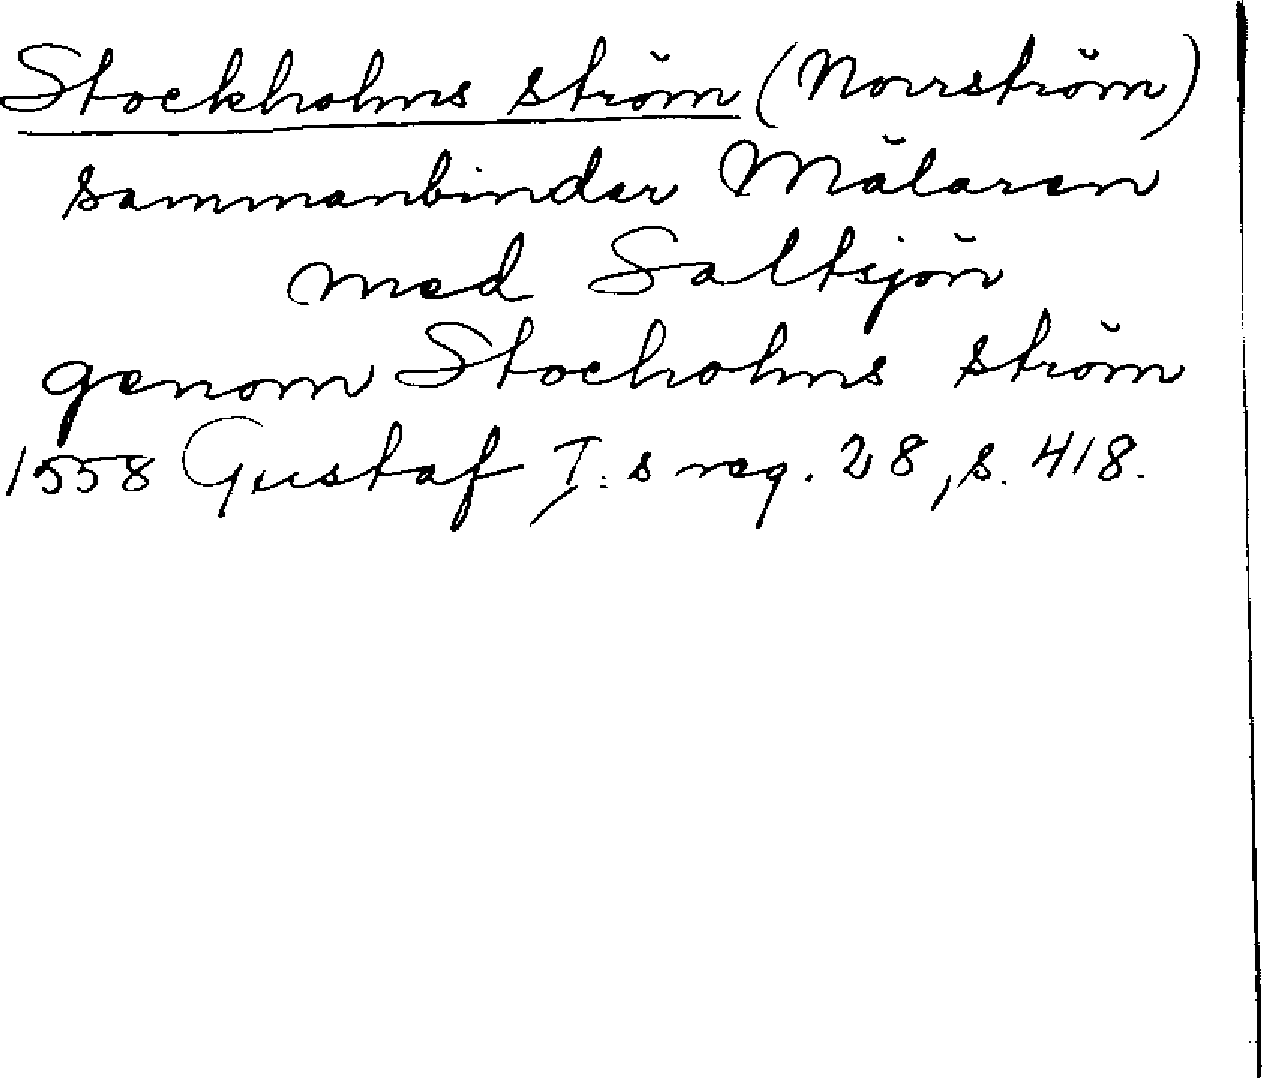 Stockholms ström (Norrström)
sammanbinder Mälaren
med Saltsjön
genom Stocholms ström
1558 Gustaf I:s reg. 28, s. 418.